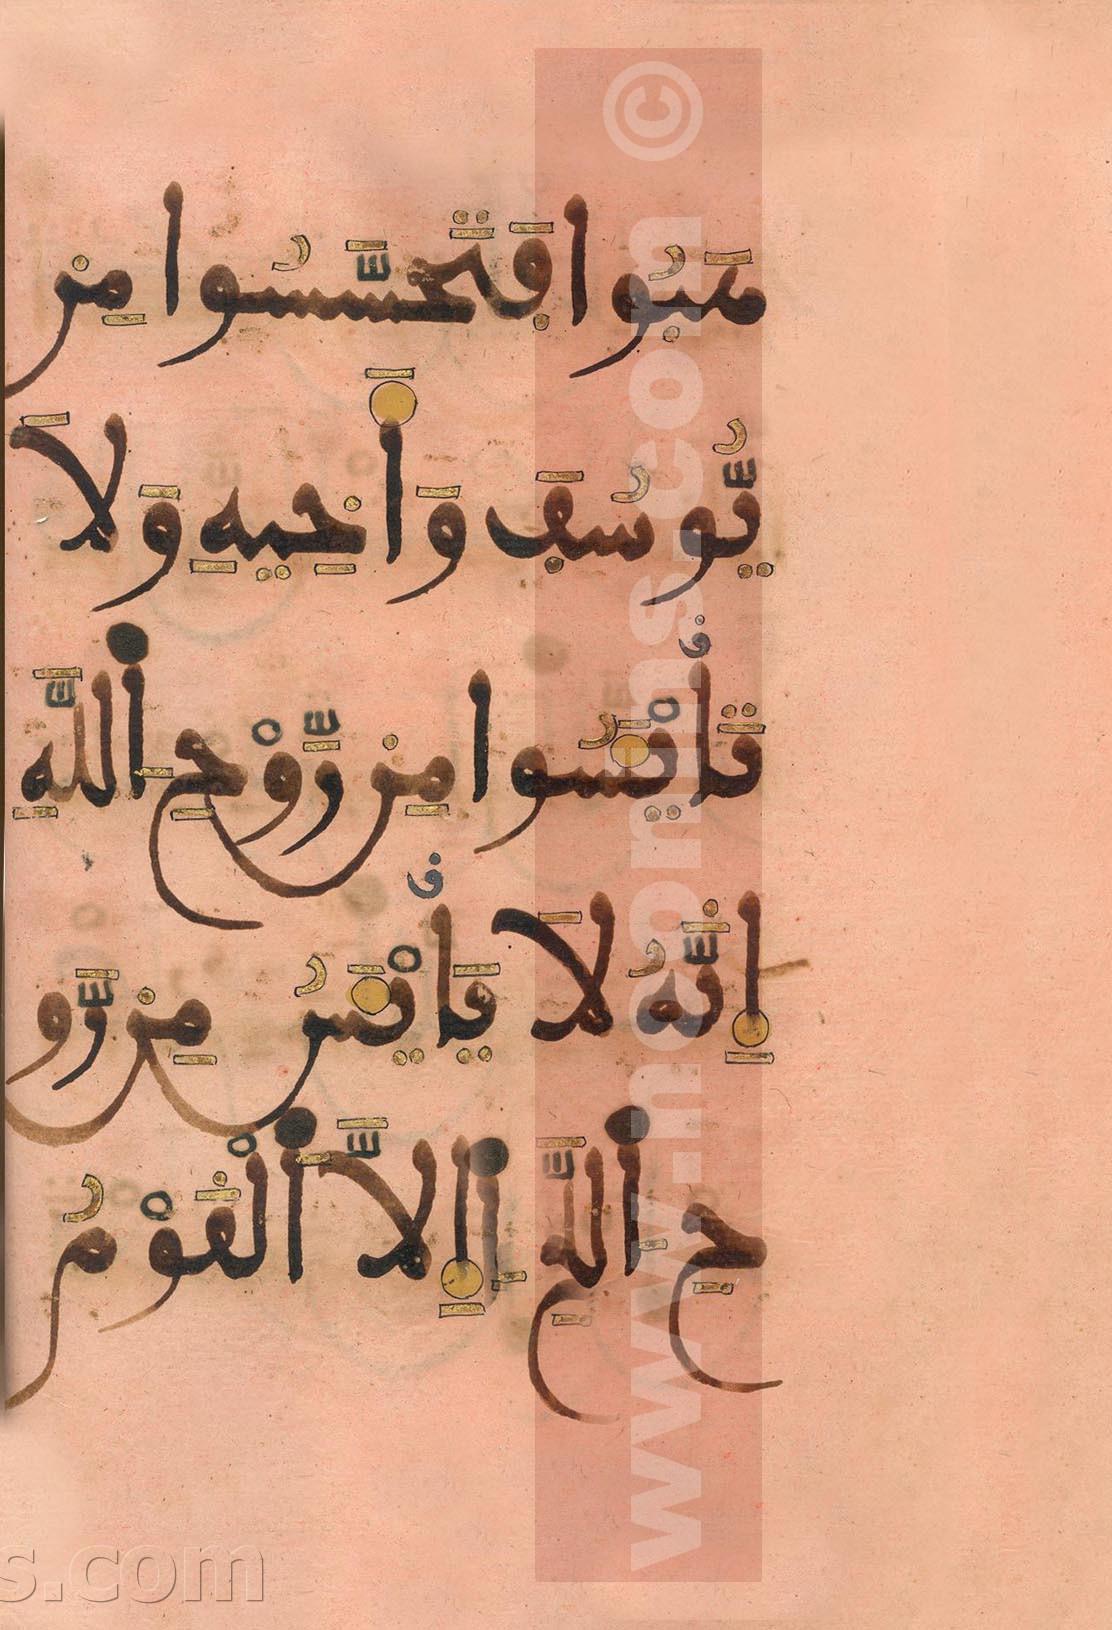 هَبُوا فَتَحَسَّسُوا مِن
يُّوسُفَ وَأَخِيهِ وَلَا
تَاْيْـَٔسُوا مِن رَّوْحِ ٱللَّهِ
إِنَّهُ لَا يَاْيْـَٔسُ مِن رَّو
حِ ٱللَّهِ إِلَّا ٱلْقَوْمُ
s.com